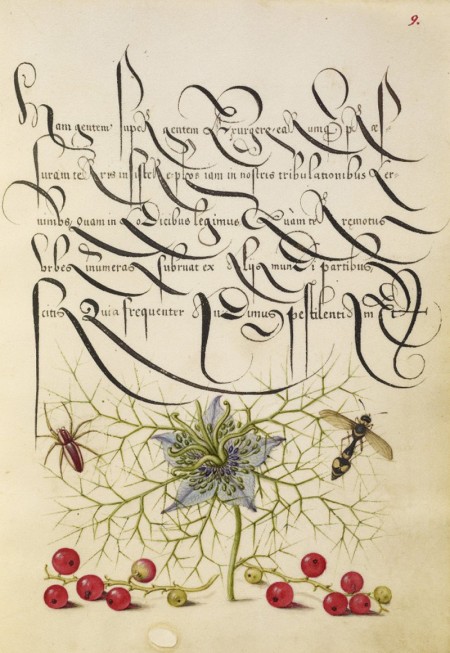 9.
Nam gentem super gentem Exurgere ea Rumq præs
suram terris insistere plos iam in nostris tribulationibus Cer
nimus, Quam in Codicibus legimus remotus
Vrbes inumeras Subruat ex alijs munDi partibus,
scitis Quia frequenter Audimus Pestilentiam Et